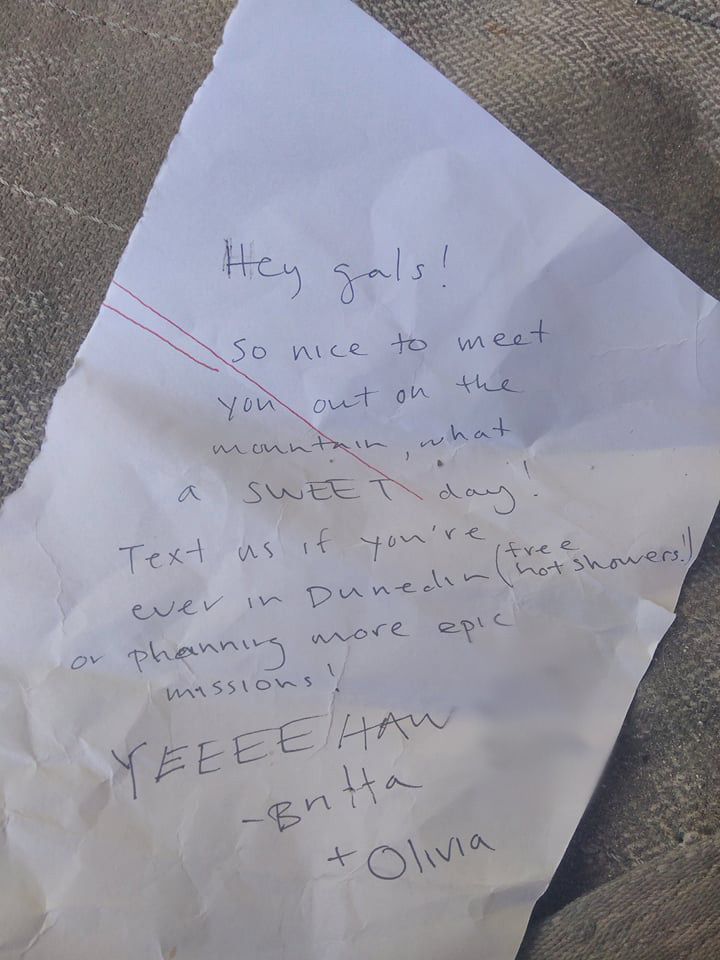 Hey gals!
So nice to meet
you out on the
mountain, what
a SWEET day!
Text us if you're
ever in Dunedin (free hot showers!)
or phanning more epic
missions!
YEEEE HAW
- Britta
+ Olivia